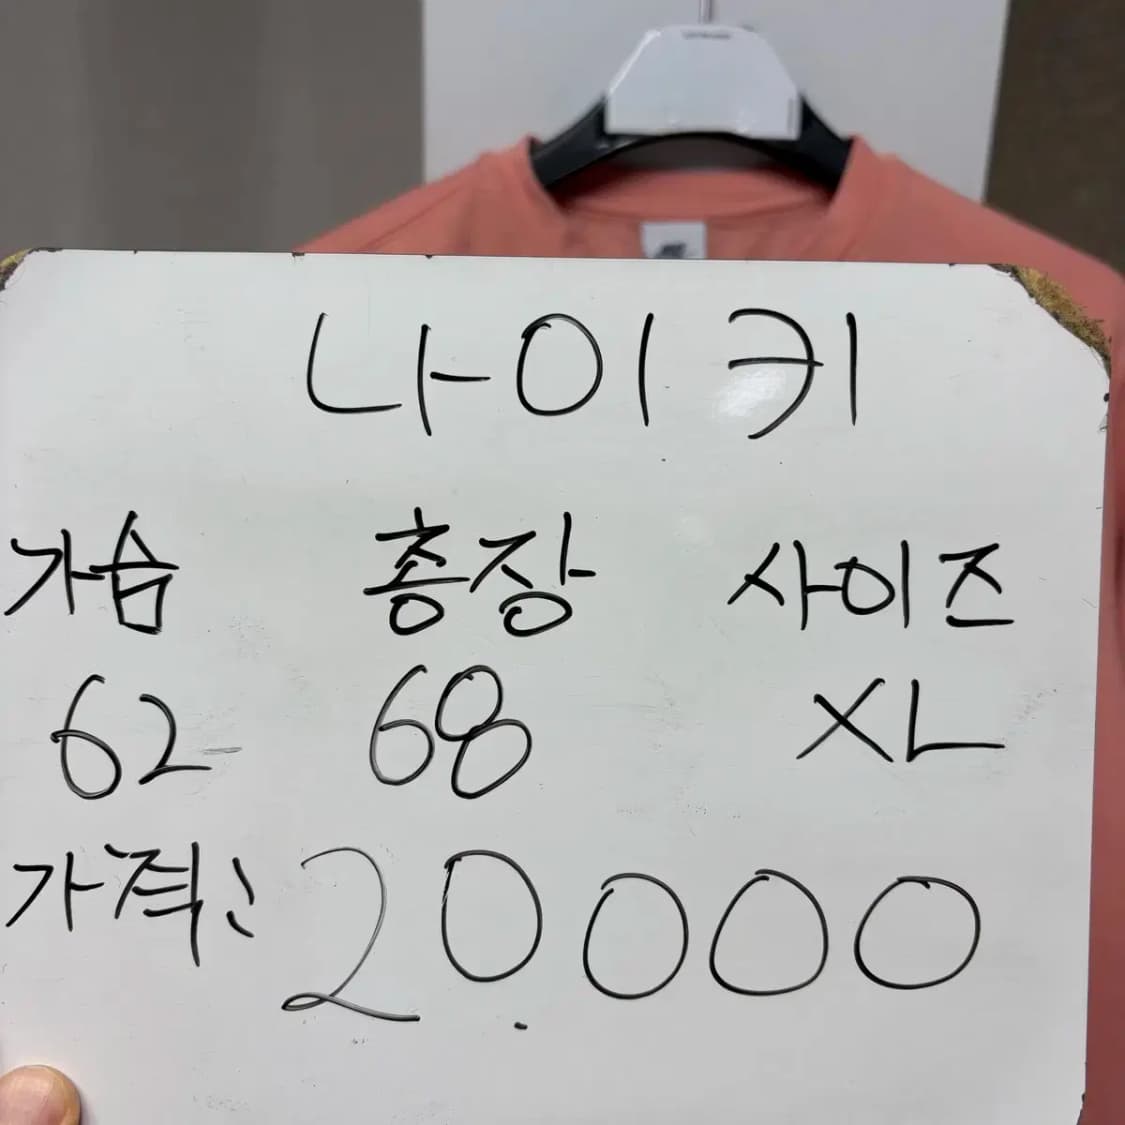 나이키
가슴 총장 사이즈
62 68 XL
가격: 20.000